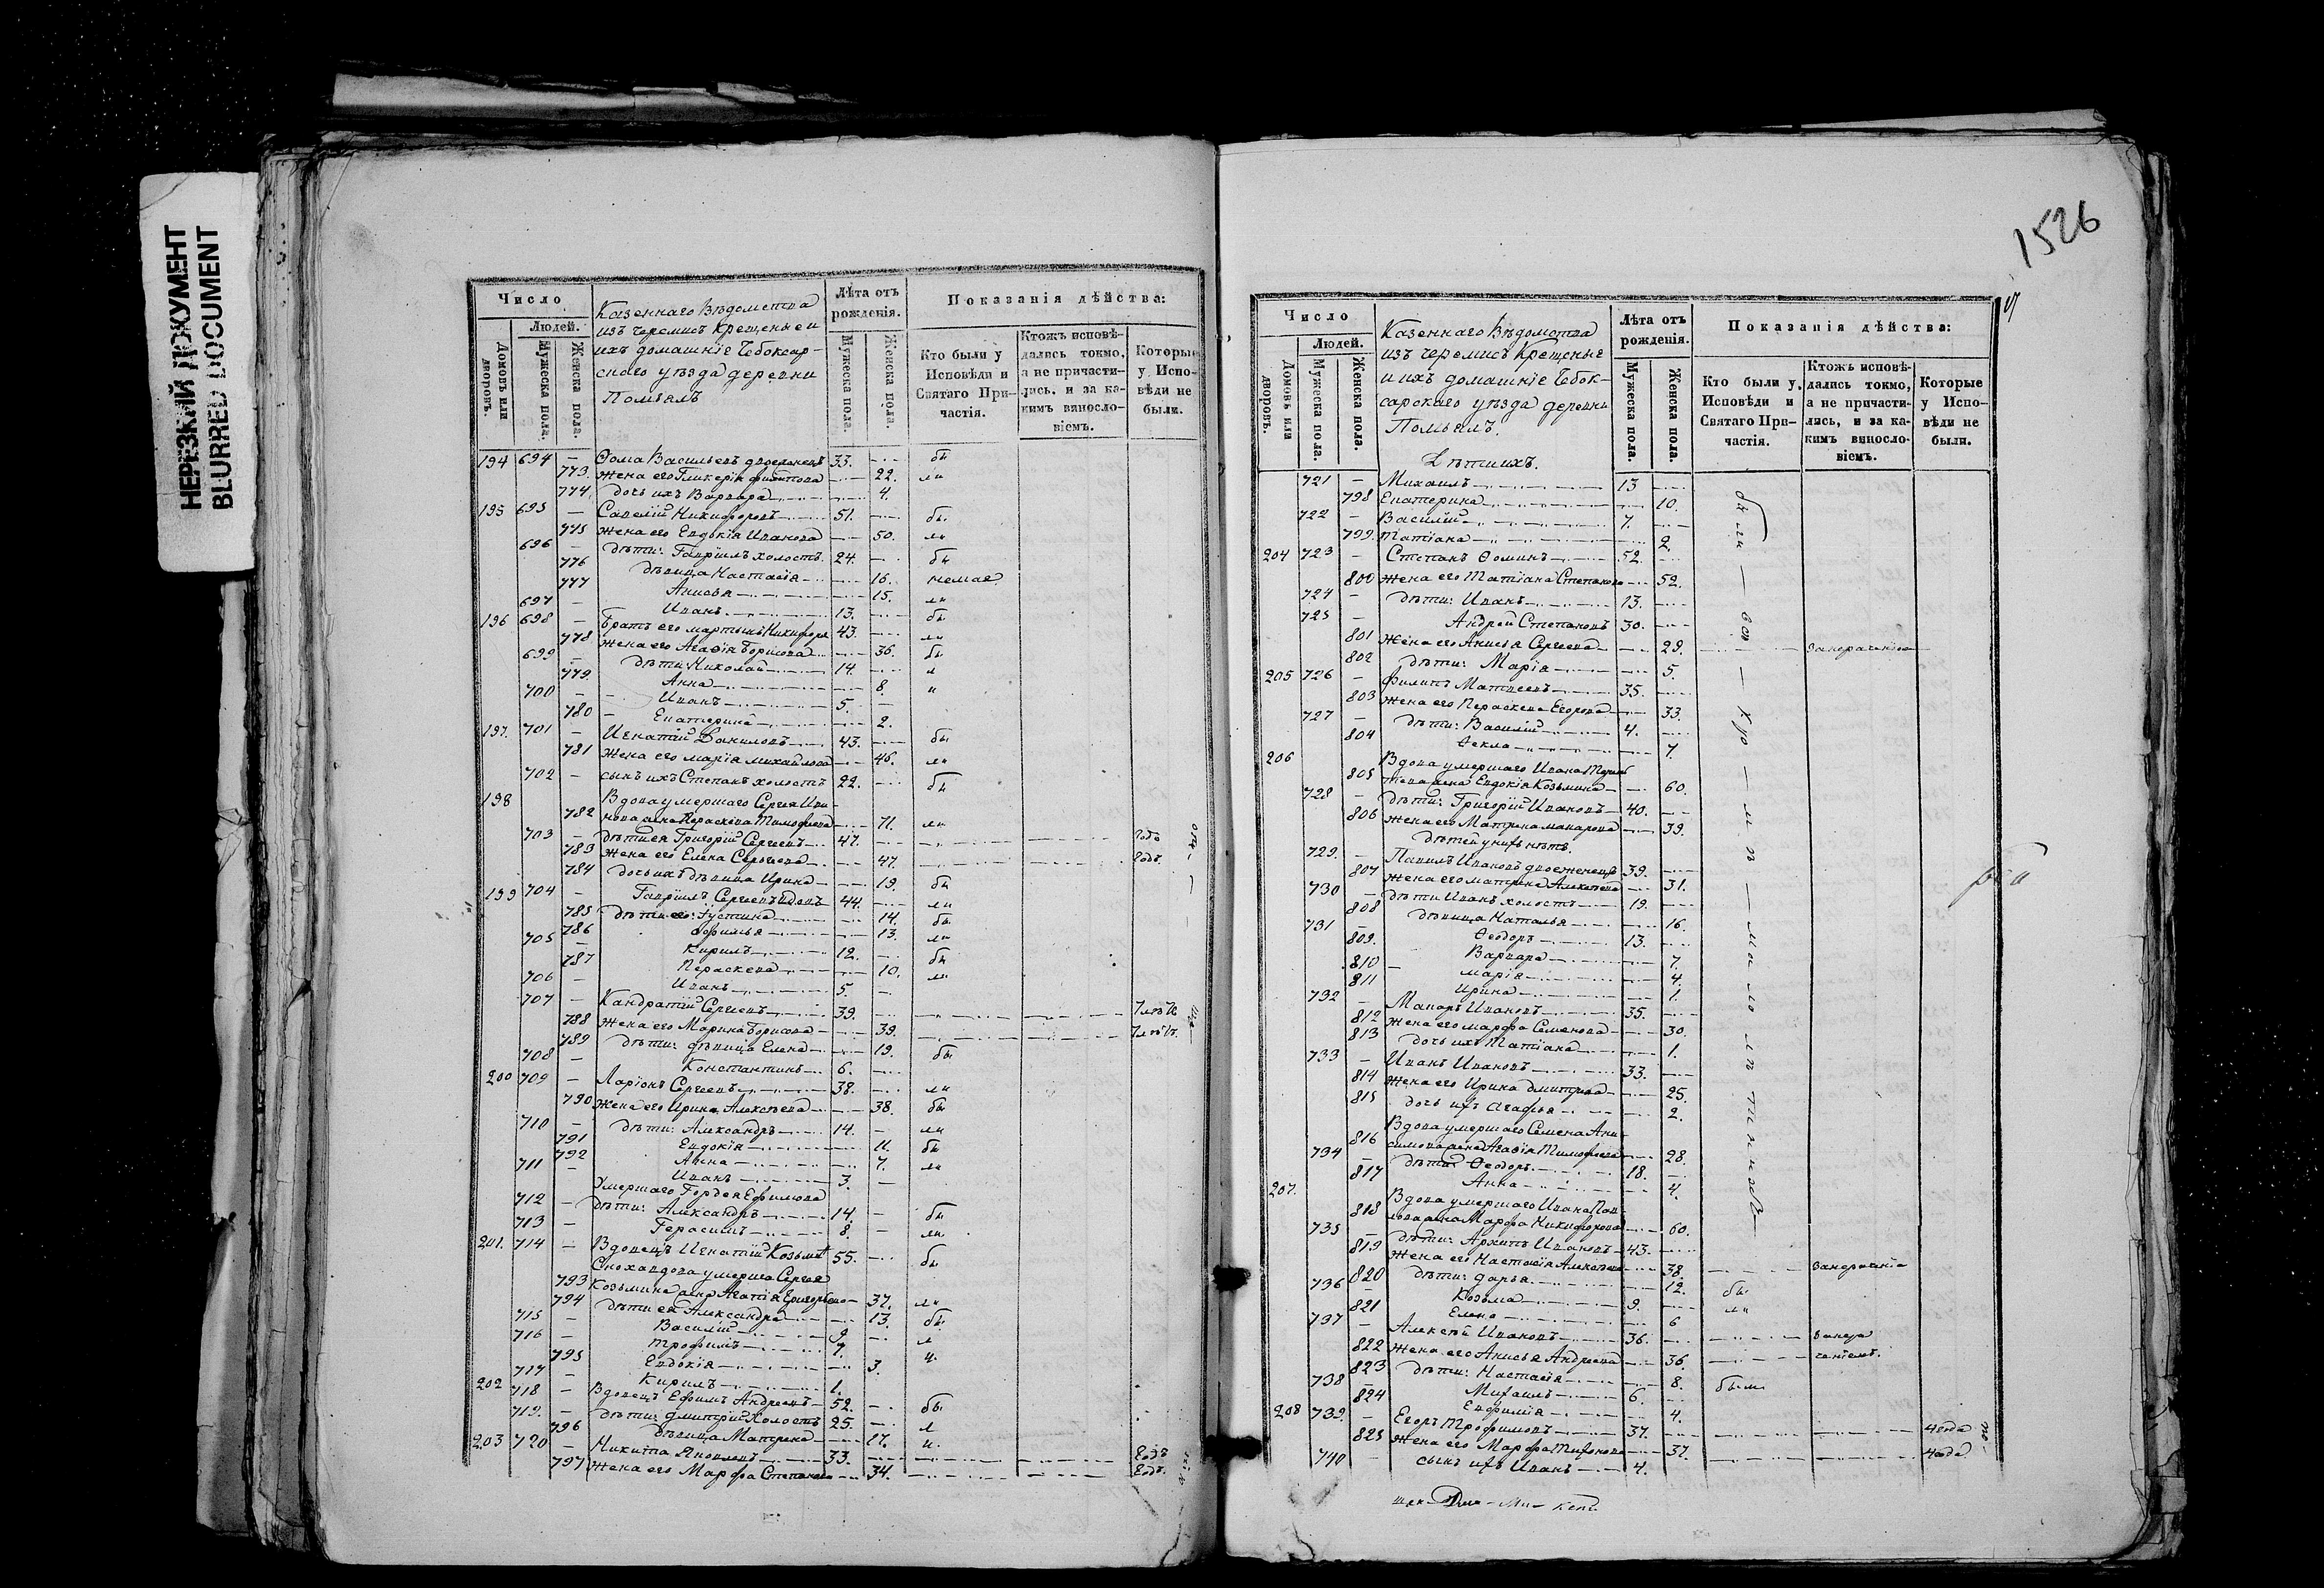 НЕРЕЗКИЙ ДОКУМЕНТ
BLURRED DOCUMENT
Число
Людей.
Домовъ или дворовъ.
Мужеска пола.
Женска пола.
Казеннаго Вѣдомства
изъ черемисъ крещеныеи
ихъ домашніе Чебоксар-
скаго уѣзда деревни
Помъялъ
Лѣта отъ рожденія.
Мужеска пола.
Женска пола.
Показанія дѣйства:
Кто были у Исповѣди и Святаго Причастія.
Ктожъ исповѣдались токмо, а не причастились, и за какимъ винословіемъ.
Которые у Исповѣди не были.
194 694 — Ѳома Васильевъ двоеженецъ 33. бы
773 Жена его Гликерія Филиппова 22. ли
774 дочь ихъ Варвара 4.
195 695 — Савелій Никифоровъ 51. бы
775 Жена его Евдокія Иванова 50. ли
696 — дѣти: Гавріилъ холостъ 24. бы
776 дѣвица Настасія 16. немая
777 Анисья 15. ли
697 — Иванъ 13. бы
196 698 — Братъ его Мартынъ Никифоров 43. ли
778 Жена его Агаѳія Борисова 36. бы
699 — дѣти: Николай 14. л
779 Анна 8. и
700 — Иванъ 5. —
780 — Екатерина 2.
197. 701 — Игнатій Даниловъ 43. бы
781 Жена его Марія Михайлова 46. ли
702 — сынъ ихъ Степанъ холостъ 22. бы
198 Вдова умершаго Сергея Ива-
782 нова жена Параскева Тимофеева 71. ли
703 — дѣти ея Григорій Сергеевъ 47. 2 годъ
783 Жена его Елена Сергеева 47. 2 годъ.
784 дочь ихъ дѣвица Ирина 19. бы
199 704 — Гавріилъ Сергеевъ вдовъ 44. ли
785 дѣти его: Іустина 14. бы
786 Софимья 13. ли
705 — Кирилъ 12. бы
787 Пераскева 10. ли
706 — Иванъ 5. —
707 — Кандратій Сергеевъ 39. 7 лѣтъ
788 Жена его Марина Борисова 39. 7 лѣтъ.
789 дѣти: дѣвица Елена 19. бы
708 — Константинъ 6.
200 709 — Ларіонъ Сергеевъ 38. ли
790 Жена его Ирина Алексѣева 38. бы
710 — дѣти: Александръ 14. ли
791 Евдокія 11. бы
792 Анна 7. ли
711 — Иванъ 3. —
Умершаго Гордея Ефимова
712 — дѣти: Александръ 14. бы
713 — Герасимъ 8. ли
201. 714 — Вдовецъ Игнатій Козьминъ 55. бы
Сноха вдова умерша Сергея
793 Козьмина жена Агафія Григорьева 37. ли
794 дѣти ея Александра 13. бы
715 — Василій 9 л
716 — Трофимъ 7. и.
795 Евдокія 3.
717 — Кирилъ 1.
202 718 — Вдовецъ Ефимъ Андреевъ 52. бы
719. — дѣти: Дмитрій холостъ 25. л
796 дѣвица Матрена 17. и.
203 720 — Никита Яковлевъ 33. 2 годъ
797 Жена его Марфа Степанова 34. 2 годъ.
1526
Число
Людей.
Домовъ или дворовъ.
Мужеска пола.
Женска пола.
Казеннаго Вѣдомства
изъ черемисъ Крещеные
и ихъ домашніе Чебок-
сарскаго уѣзда деревни
Помъялъ.
Лѣта отъ рожденія.
Мужеска пола.
Женска пола.
Показанія дѣйства:
Кто были у Исповѣди и Святаго Причастія.
Ктожъ исповѣдались токмо, а не причастились, и за какимъ винословіемъ.
Которые у Исповѣди не были.
Дѣти ихъ.
721 — Михаилъ 13
798 Екатерина 10.
722 — Василій 7.
799. Татіана 2.
204 723 — Степанъ Ѳоминъ 52.
800 Жена его Татіана Степанова 52.
724 — дѣти: Иванъ 13.
725 — Андрей Степановъ 30.
801 Жена его Анисья Сергеева 29.
802 дѣти: Марія 5.
205 726 — Филипъ Матвеевъ 35.
803 Жена его Пераскева Егорова 33.
727 — дѣти: Василій 4.
804 Ѳекла 7.
206 Вдова умершаго Ивана
805 жена Евдокія Козьмина 60.
728 — дѣти: Григорій Ивановъ 40.
806 Жена его Матрена Макарова 39.
дѣтей у нихъ нѣтъ.
729. — Павилъ Ивановъ двоеженецъ 39.
807 Жена его Матрена Алексѣева 31.
730 — дѣти Иванъ холостъ 19.
808 дѣвица Наталья 16.
731 — Ѳеодоръ 13.
809. Варвара 7.
810 — Марія 4.
811 Ирина 1.
732 — Макаръ Ивановъ 35.
812 Жена его Марфа Семенова 30.
813 дочь ихъ Татіана 1.
733 — Иванъ Ивановъ 33.
814 Жена его Ирина Дмитрева 25.
815 дочь ихъ Агафья 2.
Вдова умершаго Семена Ани-
816 симова жена Агаѳія Тимофеева 28.
734 — дѣти: Ѳеодоръ 18.
817 Анна 4.
207. Вдова умершаго Ивана Пав-
818 лова жена Марфа Никифорова 60.
735 — дѣти: Архипъ Ивановъ 43.
819 Жена его Настасія Алексѣева 38.
820 дѣти: Дарья 12. бы
736 — Козьма 9. ли
821 Елена 6
737 — Алексѣй Ивановъ 36.
822 Жена его Анисья Андреева 36.
823 дѣти: Настасія 8. были
738 — Михаилъ 6.
824 Евфимія 4.
208 739. — Егоръ Трофимовъ 37. 4 года
825 Жена его Марфа Тихонова 37. 4 года
740 — сынъ ихъ Иванъ 4.